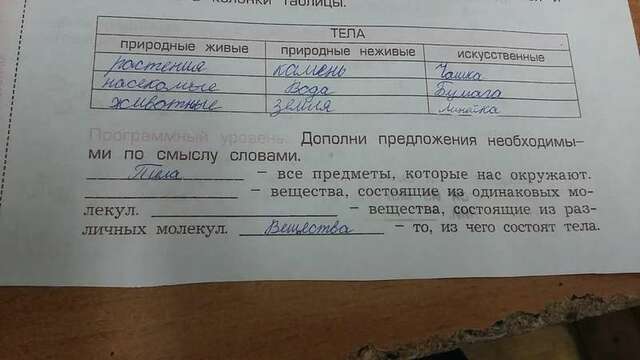 колонки таблицы.
ТЕЛА
природные живые природные неживые искусственные
растения камень Чашка
насекомые вода Бумага
животные земля линейка
Программный уровень. Дополни предложения необходимы-
ми по смыслу словами.
Тела – все предметы, которые нас окружают.
– вещества, состоящие из одинаковых мо-
лекул. – вещества, состоящие из раз-
личных молекул. Вещества – то, из чего состоят тела.